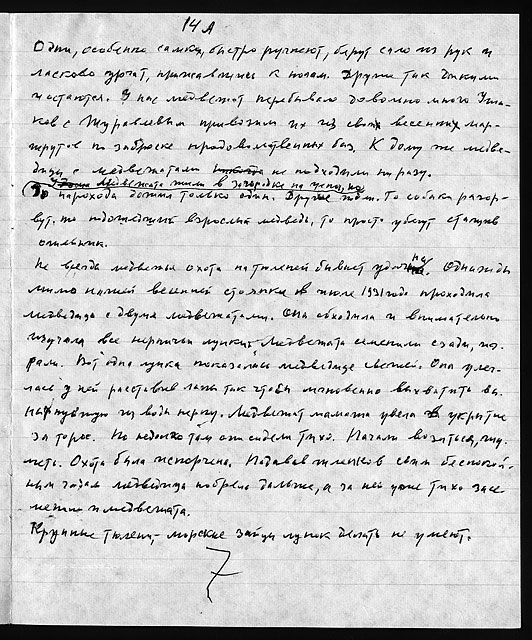 14А
Одни, особенно самки, быстро ручнеют, берут сало из рук и
ласково урчат, прижавшись к ногам. Другие так дикими
и остаются. У нас медвежат перебывало довольно много. Уша-
ков с Журавлевым привозили их из своих весенних мар-
шрутов по заброске продовольственных баз. К дому же медве-
дицы с медвежатами не подходили ни разу.
У дома медвежата жили в загородке на цепи, но
до парохода дожил только один. Другие То собаки разор-
вут, то подошедший взрослый медведь, то просто убегут стащив
ошейник.
Не всегда медвежья охота на тюленей бывает удачна. Однажды
мимо нашей весенней стоянки в июле 1931 года проходила
медведица с двумя медвежатами. Она обходила и внимательно
изучала все нерпичьи лунки. Медвежата семенили сзади, иг-
рали. Вот одна лунка показалась медведице свежей. Она улег-
лась у ней расставив лапы так чтобы мгновенно выхватить вы-
нырнувшую из воды нерпу. Медвежат мамаша увела в укрытие
за торос. Но недолго там они сидели тихо. Начали возиться, шу-
меть. Охота была испорчена. Надавав шлепков своим беспокой-
ным чадам медведица побрела дальше, а за ней уже тихо засе-
менили и медвежата.
Крупные тюлени - морские зайцы лунок делать не умеют.